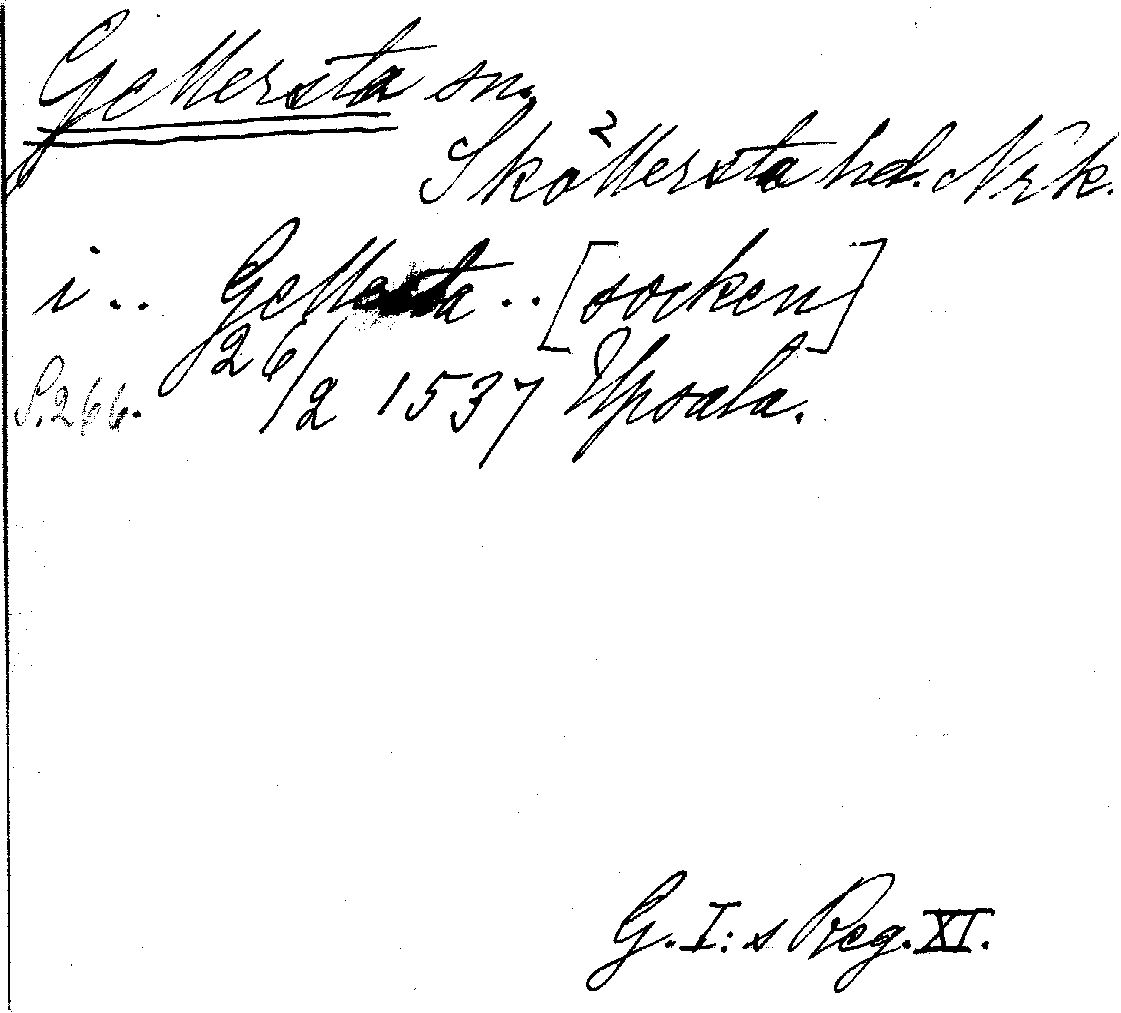 Gellersta sn.
Sköllersta hd. Nrk.
i .. Gellesta .. [socken]
S. 266. 26/2 1537 Upsala.
G. I:s Reg. XI.